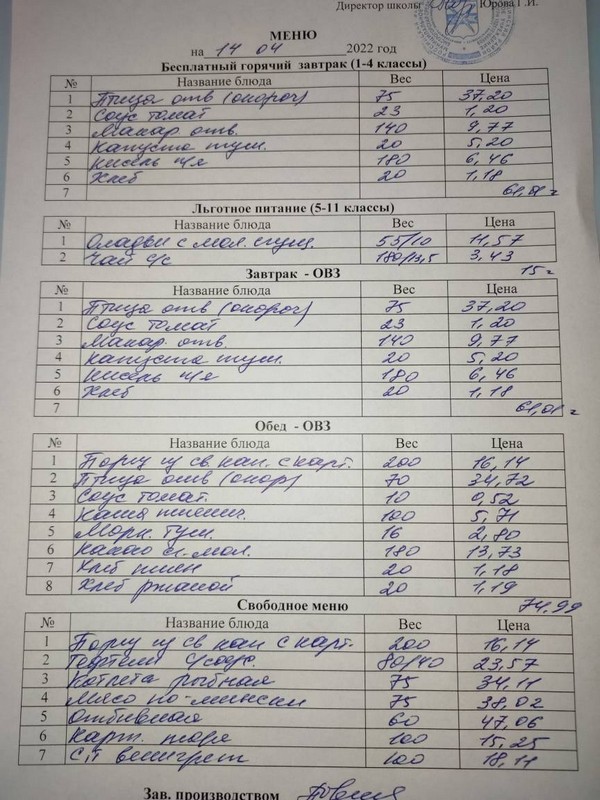 Директор школы Юрова Г.И.
МЕНЮ
на 14 04 2022 год
Бесплатный горячий завтрак (1-4 классы)
№ Название блюда Вес Цена
1 Птица отв (окороч) 75 37,20
2 Соус томат 23 1,20
3 Макар отв. 140 9,77
4 Капуста туш. 20 5,20
5 Кисель 180 6,46
6 Хлеб 20 1,18
7 61,01
Льготное питание (5-11 классы)
№ Название блюда Вес Цена
1 Оладьи с мол. сгущ. 55/10 11,57
2 Чай с/с 180/13,5 3,43
15
Завтрак - ОВЗ
№ Название блюда Вес Цена
1 Птица отв (окороч) 75 37,20
2 Соус томат 23 1,20
3 Макар отв. 140 9,77
4 Капуста туш. 20 5,20
5 Кисель 180 6,46
6 Хлеб 20 1,18
7 61,01
Обед - ОВЗ
№ Название блюда Вес Цена
1 Борщ из св. кап. с карт. 200 16,14
2 Птица отв (окор) 70 34,72
3 Соус томат. 10 0,52
4 Каша пшенич. 100 5,71
5 Морк. туш. 16 2,80
6 Какао 180 13,73
7 Хлеб пшен 20 1,18
8 Хлеб ржаной 20 1,19
74,99
Свободное меню
№ Название блюда Вес Цена
1 Борщ из св кап с карт. 200 16,14
2 Тефтели с/соус. 80/40 23,57
3 Котлета рыбная 75 34,11
4 Мясо по-мински 75 38,02
5 Отбивная 60 47,06
6 Карт. пюре 100 15,25
7 винегрет 100 18,11
Зав. производством